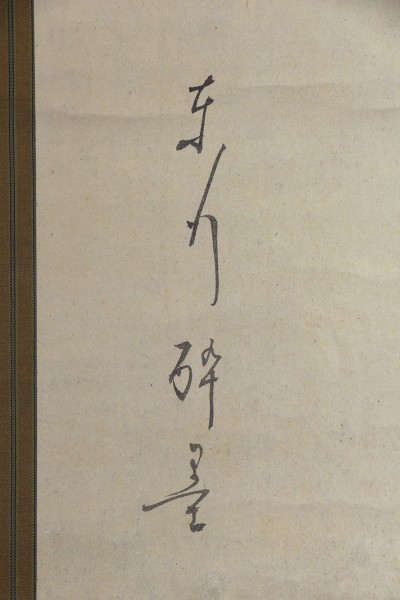 東川酔墨